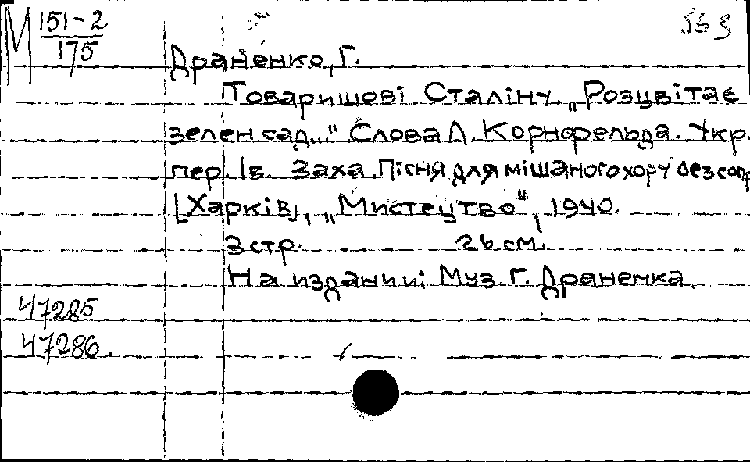 М 151-2
175
Драненко, Г.
Товаришеві Сталіну „Розцвітає
зелен сад..." Слова Л. Корнфельда. Укр.
пер. Ів. Заха. Пісня для мішаного хору без сопр
[Харків], „Мистецтво", 1940.
3 стр. 26 см.
На издании: Муз. Г. Драненка.
47285
47286.